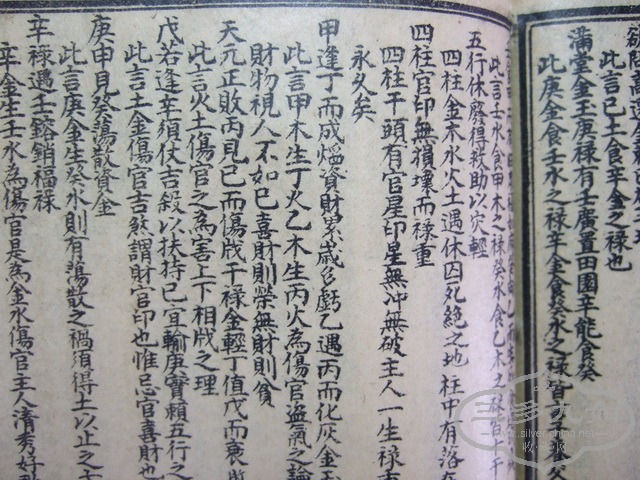 此言己土食辛金之禄也
滿堂金玉庚禄有壬廣置田園辛能食癸
此庚金食壬水之禄辛金食癸水之禄皆
此言壬水食甲木之禄癸水食乙木之
五行休廢得救助以灾輕
四柱金木水火土遇休囚死絶之地柱中有落在
四柱官印無損壞而禄重
四柱干頭有官星印星無冲無破主人一生禄
永久矣
甲逢丁而成熖資財累歲多虧乙遇丙而化灰金玉
此言甲木生丁火乙木生丙火為傷官盗氣之論
財物視人不如己喜財則榮無財則貧
天元正敗丙見己而傷戕干禄金輕丁值戊而衰
此言火土傷官之為害上下相戕之理
戊若逢辛須仗吉殺以扶持己宜輸庚寶賴五行之
此言土金傷官吉煞謂財官印也惟忌官喜財也
庚申見癸蕩散資金
此言庚金生癸水則有蕩散之禍須得土以止之
辛禄遇壬鎔銷福禄
辛金生壬水為傷官是為金水傷官主人清秀好
www.silverchina.net